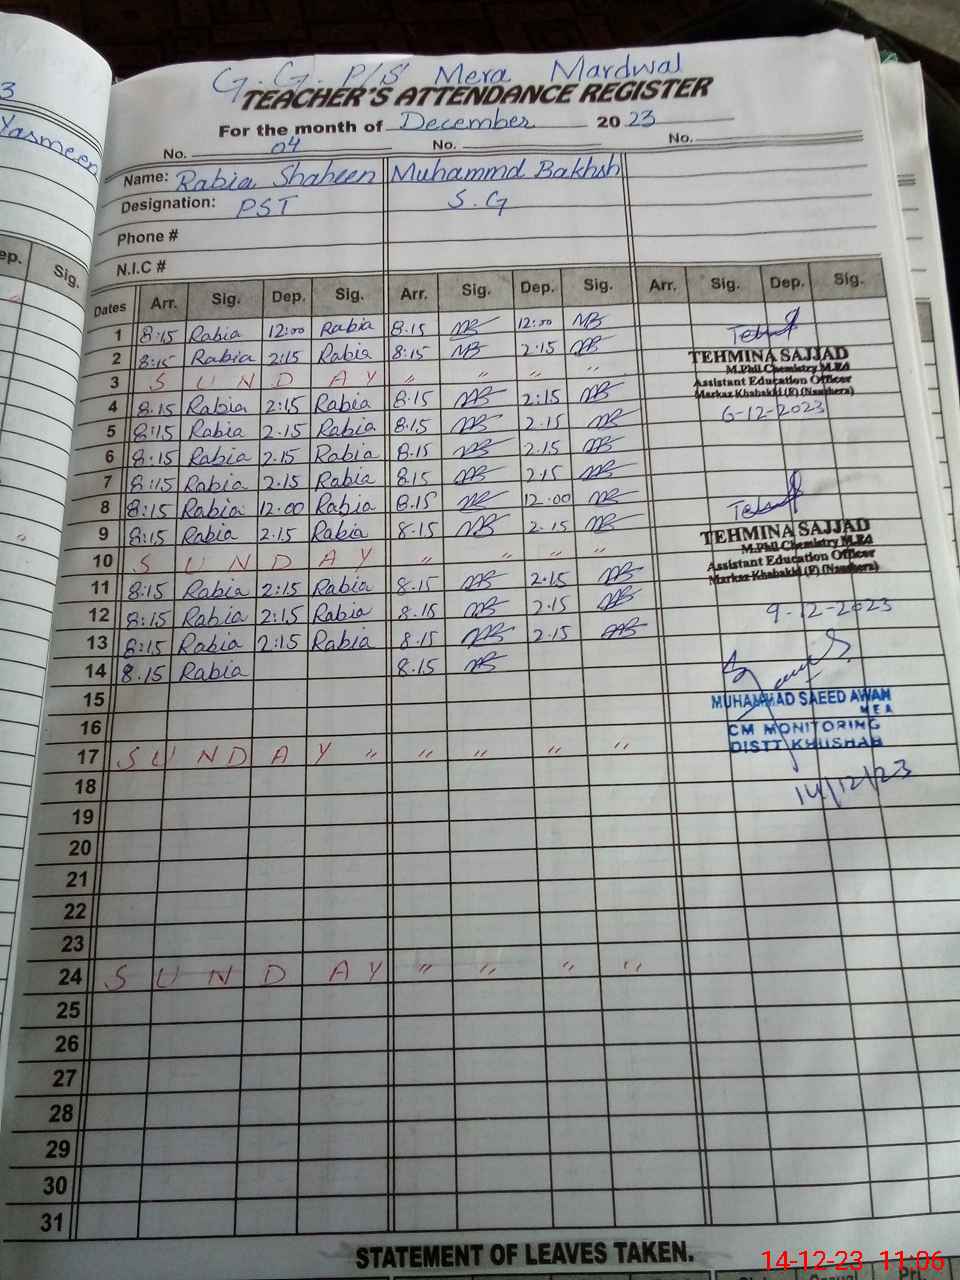 3
Yasmeen
ep.
Sig.
G. G. P/S Mera Mardwal
TEACHER'S ATTENDANCE REGISTER
For the month of December 2023
No. 04 No. No.
Name: Rabia Shaheen Muhammd Bakhsh
Designation: PST S.G
Phone #
N.I.C #
Dates Arr. Sig. Dep. Sig. Arr. Sig. Dep. Sig. Arr. Sig. Dep. Sig.
1 8:15 Rabia 12:00 Rabia 8.15 MB 12:00 MB
2 8:15 Rabia 2:15 Rabia 8:15 MB 2.15 MB
3 S U N D A Y " " " "
4 8.15 Rabia 2:15 Rabia 8.15 MB 2:15 MB
5 8:15 Rabia 2.15 Rabia 8.15 MB 2.15 MB
6 8:15 Rabia 2.15 Rabia 8.15 MB 2.15 MB
7 8:15 Rabia 2.15 Rabia 8.15 MB 2.15 MB
8 8:15 Rabia 12.00 Rabia 8.15 MB 12.00 MB
9 8:15 Rabia 2.15 Rabia 8.15 MB 2.15 MB
10 S U N D A Y " " " "
11 8:15 Rabia 2:15 Rabia 8.15 MB 2.15 MB
12 8:15 Rabia 2:15 Rabia 8.15 MB 2.15 MB
13 8:15 Rabia 2:15 Rabia 8.15 MB 2.15 MB
14 8.15 Rabia 8.15 MB
15
16
17 S U N D A Y " " " " "
18
19
20
21
22
23
24 S U N D A Y " " " "
25
26
27
28
29
30
31
TEHMINA SAJJAD
M.Phil Chemistry M.Ed
Assistant Education Officer
Markaz Khabakki (F) (Naushera)
6-12-2023
TEHMINA SAJJAD
M.Phil Chemistry M.Ed
Assistant Education Officer
Markaz Khabakki (F) (Naushera)
9-12-2023
MUHAMMAD SAEED AWAN
MEA
CM MONITORING
DISTT KHUSHAB
14/12/23
STATEMENT OF LEAVES TAKEN.
14-12-23 11:06